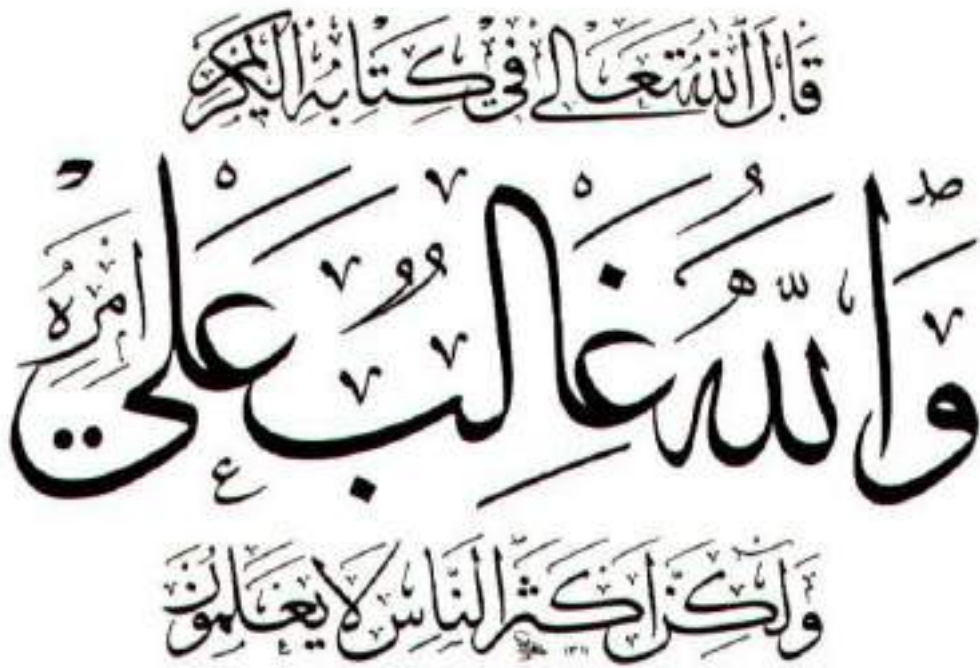 قَالَ اللّٰهُ تَعَالٰى فِيْ كِتَابِهِ الْكَرِيْمِ
وَاللّٰهُ غَالِبٌ عَلٰي اَمْرِهِ
وَلٰكِنَّ اَكْثَرَ النَّاسِ لَا يَعْلَمُوْنَ